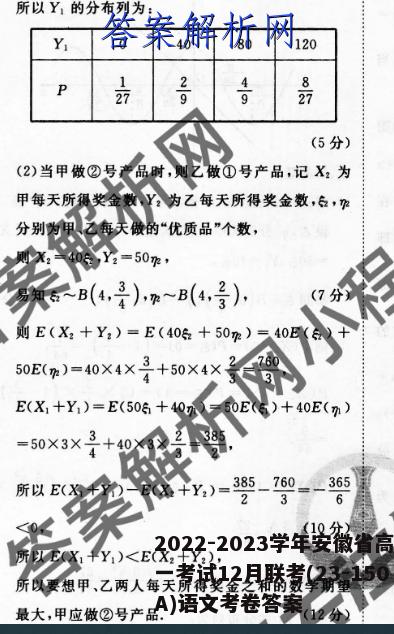 所以 Y₁ 的分布列为:
答案解析网
Y₁ 40 80 120
P 1/27 2/9 4/9 8/27
(5 分)
(2)当甲做②号产品时,则乙做①号产品,记 X₂ 为
甲每天所得奖金数,Y₂ 为乙每天所得奖金数,ξ₂,η₂
分别为甲、乙每天做的“优质品”个数,
则 X₂=40ξ₂,Y₂=50η₂,
易知 ξ₂~B(4,3/4),η₂~B(4,2/3), (7 分)
则 E(X₂+Y₂)=E(40ξ₂+50η₂)=40E(ξ₂)+
50E(η₂)=40×4×3/4+50×4×2/3=760/3,
E(X₁+Y₁)=E(50ξ₁+40η₁)=50E(ξ₁)+40E(η₁)
=50×3×3/4+40×3×2/3=385/2,
所以 E(X₁+Y₁)-E(X₂+Y₂)=385/2-760/3=-365/6
<0, (10 分)
所以 E(X₁+Y₁)<E(X₂+Y₂),
所以要想甲、乙两人每天所得奖金之和的数学期望
最大,甲应做②号产品. (12 分)
答案解析网小程
答案解析网
2022-2023学年安徽省高
一考试12月联考(23-150
A)语文考卷答案